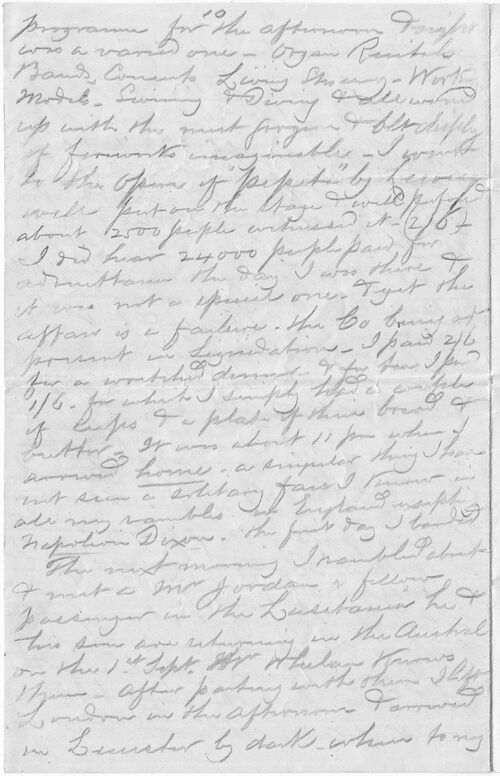 10
programme for the afternoon & night
was a varied one - Organ Recitals
Bands, Concerts Living Statuary - Working
Models - Swimming & Diving & all wound
up with the most gorgeous & display
of fireworks imaginable - I went
to the Opera of "Pepita" by Lecocq
well put on the stage & well performed
about 2500 people witnessed it - (2/6) -
I did hear 24000 people paid for
admittance the day I was there &
it was not a special one - & yet the
affair is a failure - the Co being at
present in Liquidation - I paid 2/6
for a wretched dinner - & for tea I paid
1/6 - for which I simply had a couple
of cups & a plate of thin bread &
butter - It was about 11 pm when I
arrived home - a singular thing I have
not seen a solitary face I know in
all my rambles in England excepting
Napoleon Dixon - the first day I landed
The next morning I rambled about
& met a Mr Jordan a fellow
passenger in the Lusitania he &
his son are returning in the Austral
on the 1st Sept. Mr Whelan knows
them - After parting with them I left
London in the afternoon & arrived
in Leicester by dark - when to my